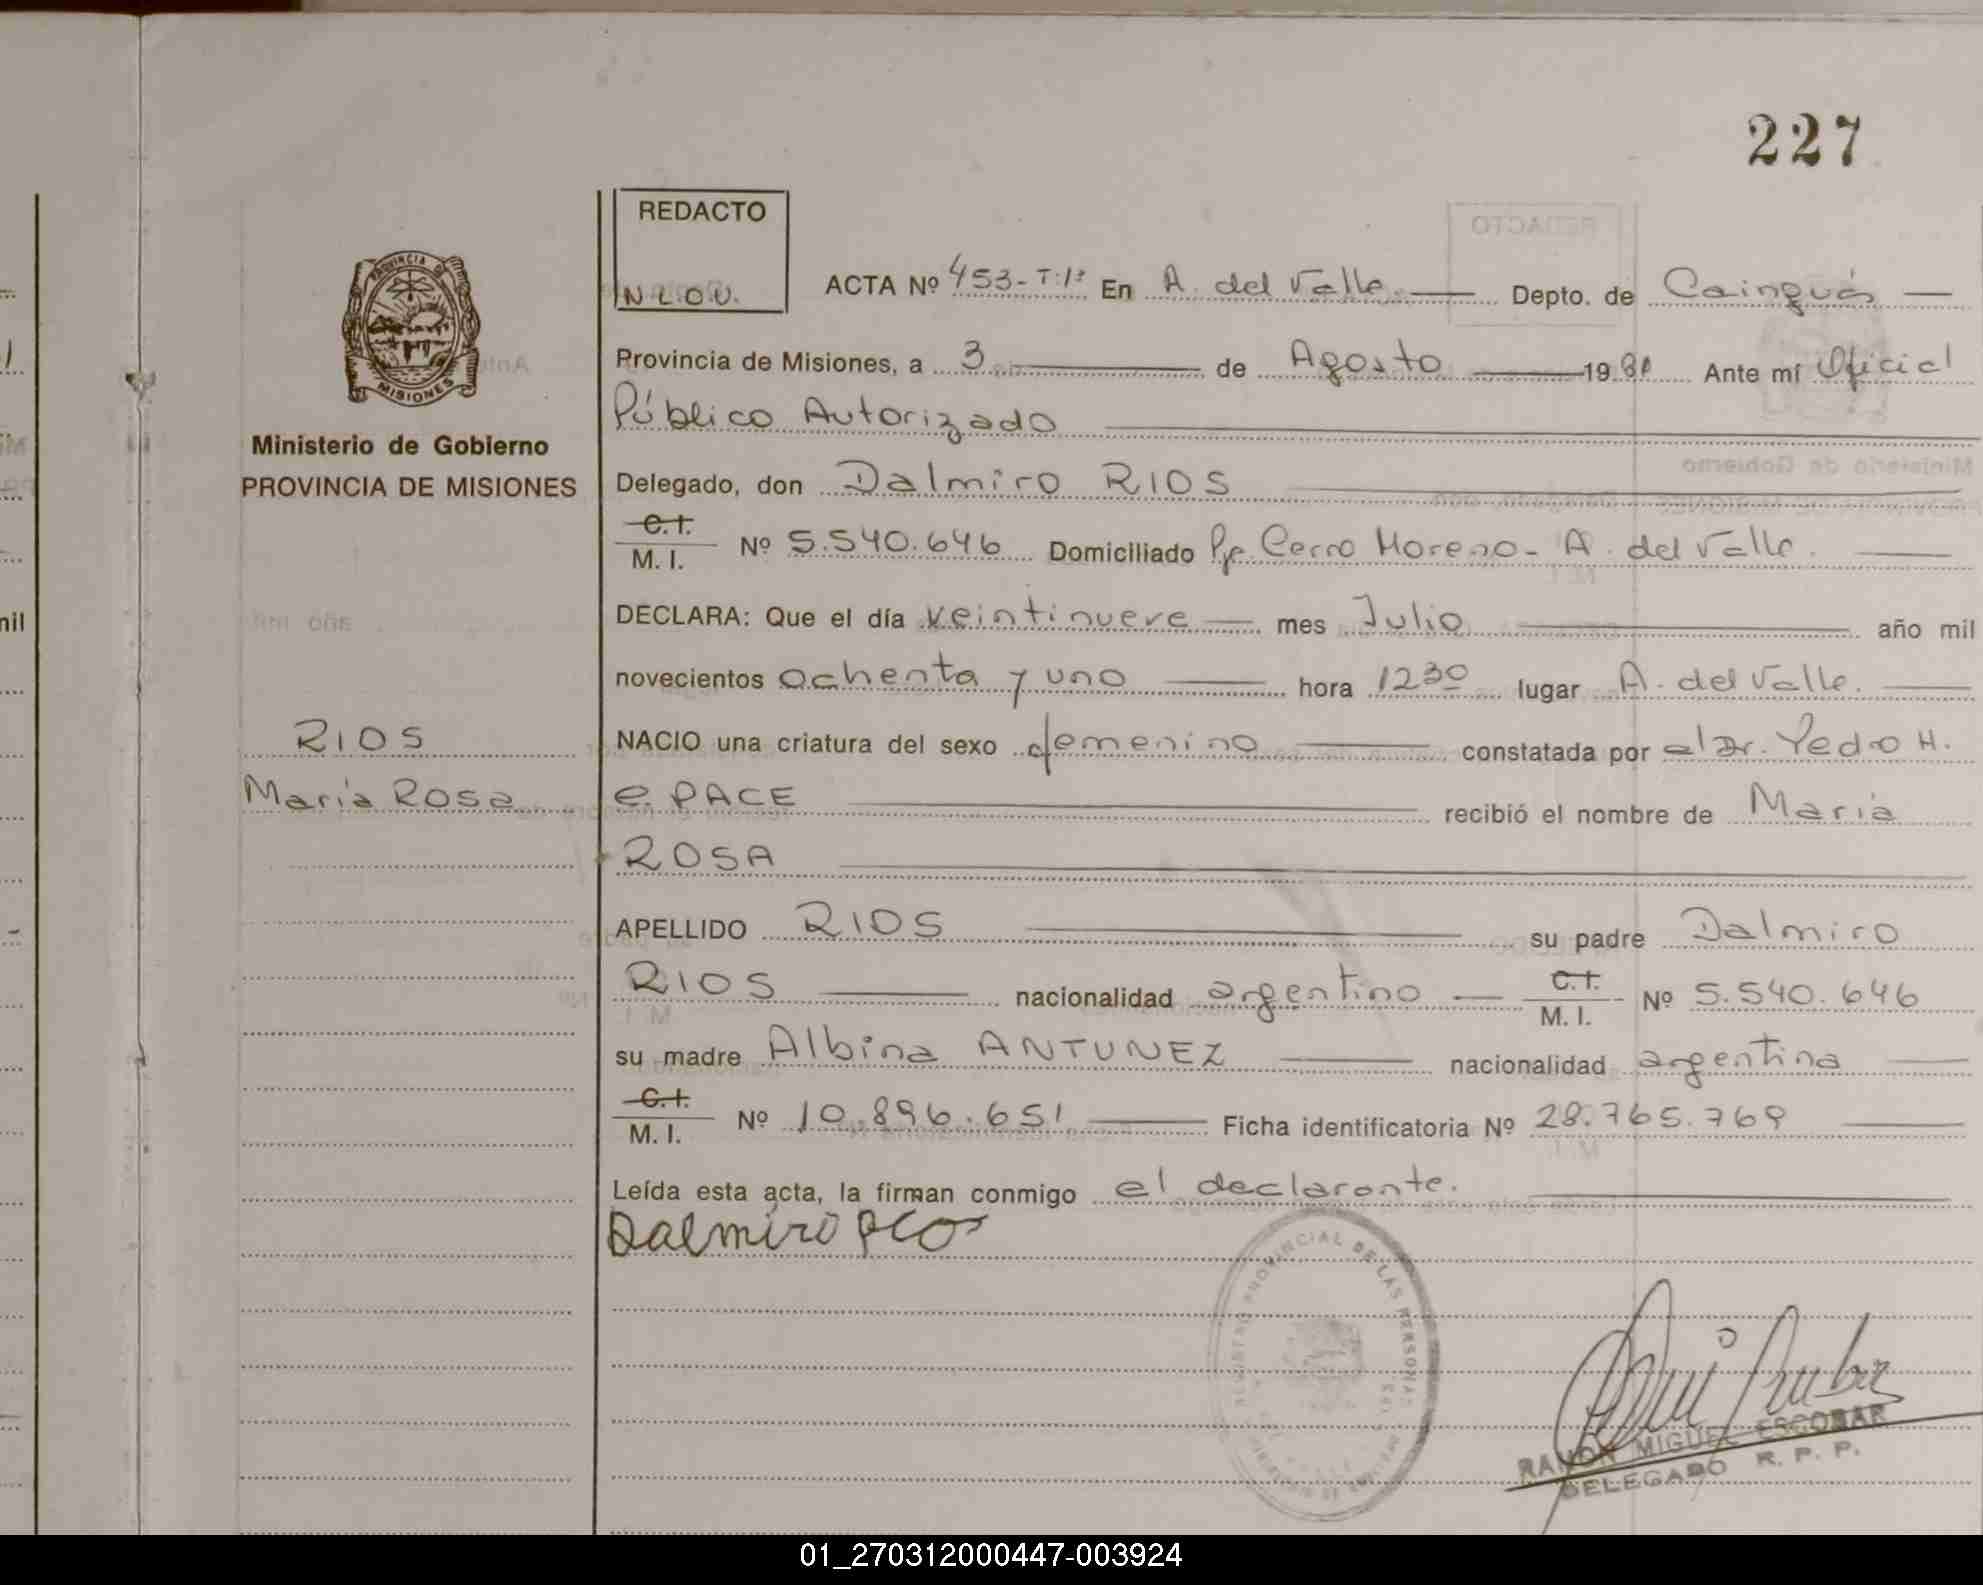 227
REDACTO
N.L.O.U.
ACTA Nº 453-T:1º En A. del Valle. Depto. de Cainguás
Provincia de Misiones, a 3 de Agosto 19 81 Ante mí Oficial
Público Autorizado
Ministerio de Gobierno
PROVINCIA DE MISIONES
Delegado, don Dalmiro RIOS
C.I.
M. I. Nº 5.540.646 Domiciliado Pje. Cerro Moreno- A. del Valle.
DECLARA: Que el día veintinueve mes Julio año mil
novecientos ochenta y uno hora 12 30 lugar A. del Valle.
RIOS
María Rosa
NACIO una criatura del sexo femenino constatada por el Dr. Pedro H.
e. PACE recibió el nombre de María
ROSA
APELLIDO RIOS su padre Dalmiro
RIOS nacionalidad argentino C.I. M. I. Nº 5.540.646
su madre Albina ANTUNEZ nacionalidad argentina
C.I.
M. I. Nº 10.896.651 Ficha identificatoria Nº 28.765.769
Leída esta acta, la firman conmigo el declarante.
Dalmiro Rios
REGISTRO PROVINCIAL DE LAS PERSONAS
RAMON MIGUEL ESCOBAR
DELEGADO R. P. P.
01_270312000447-003924